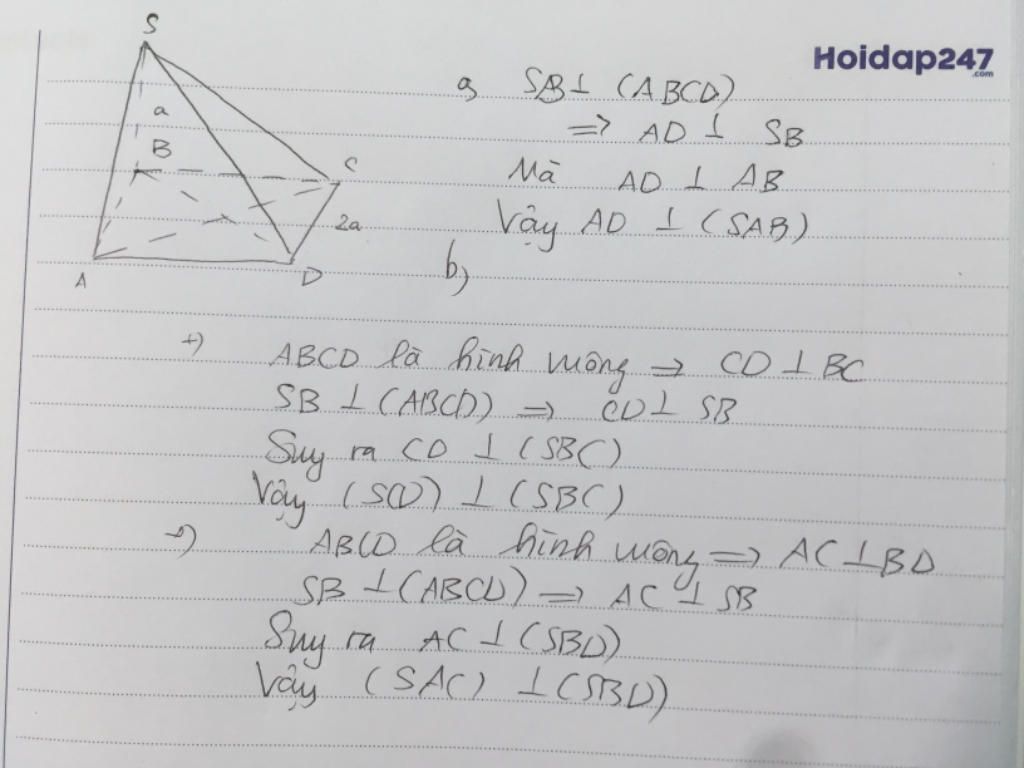 S
Hoidap247
.com
a
a, SB ⊥ (ABCD)
⟹ AD ⊥ SB
B
C
Mà AD ⊥ AB
2a
Vậy AD ⊥ (SAB)
A
D
b)
+) ABCD là hình vuông ⟹ CD ⊥ BC
SB ⊥ (ABCD) ⟹ CD ⊥ SB
Suy ra CD ⊥ (SBC)
Vậy (SCD) ⊥ (SBC)
+) ABCD là hình vuông ⟹ AC ⊥ BD
SB ⊥ (ABCD) ⟹ AC ⊥ SB
Suy ra AC ⊥ (SBD)
Vậy (SAC) ⊥ (SBD)